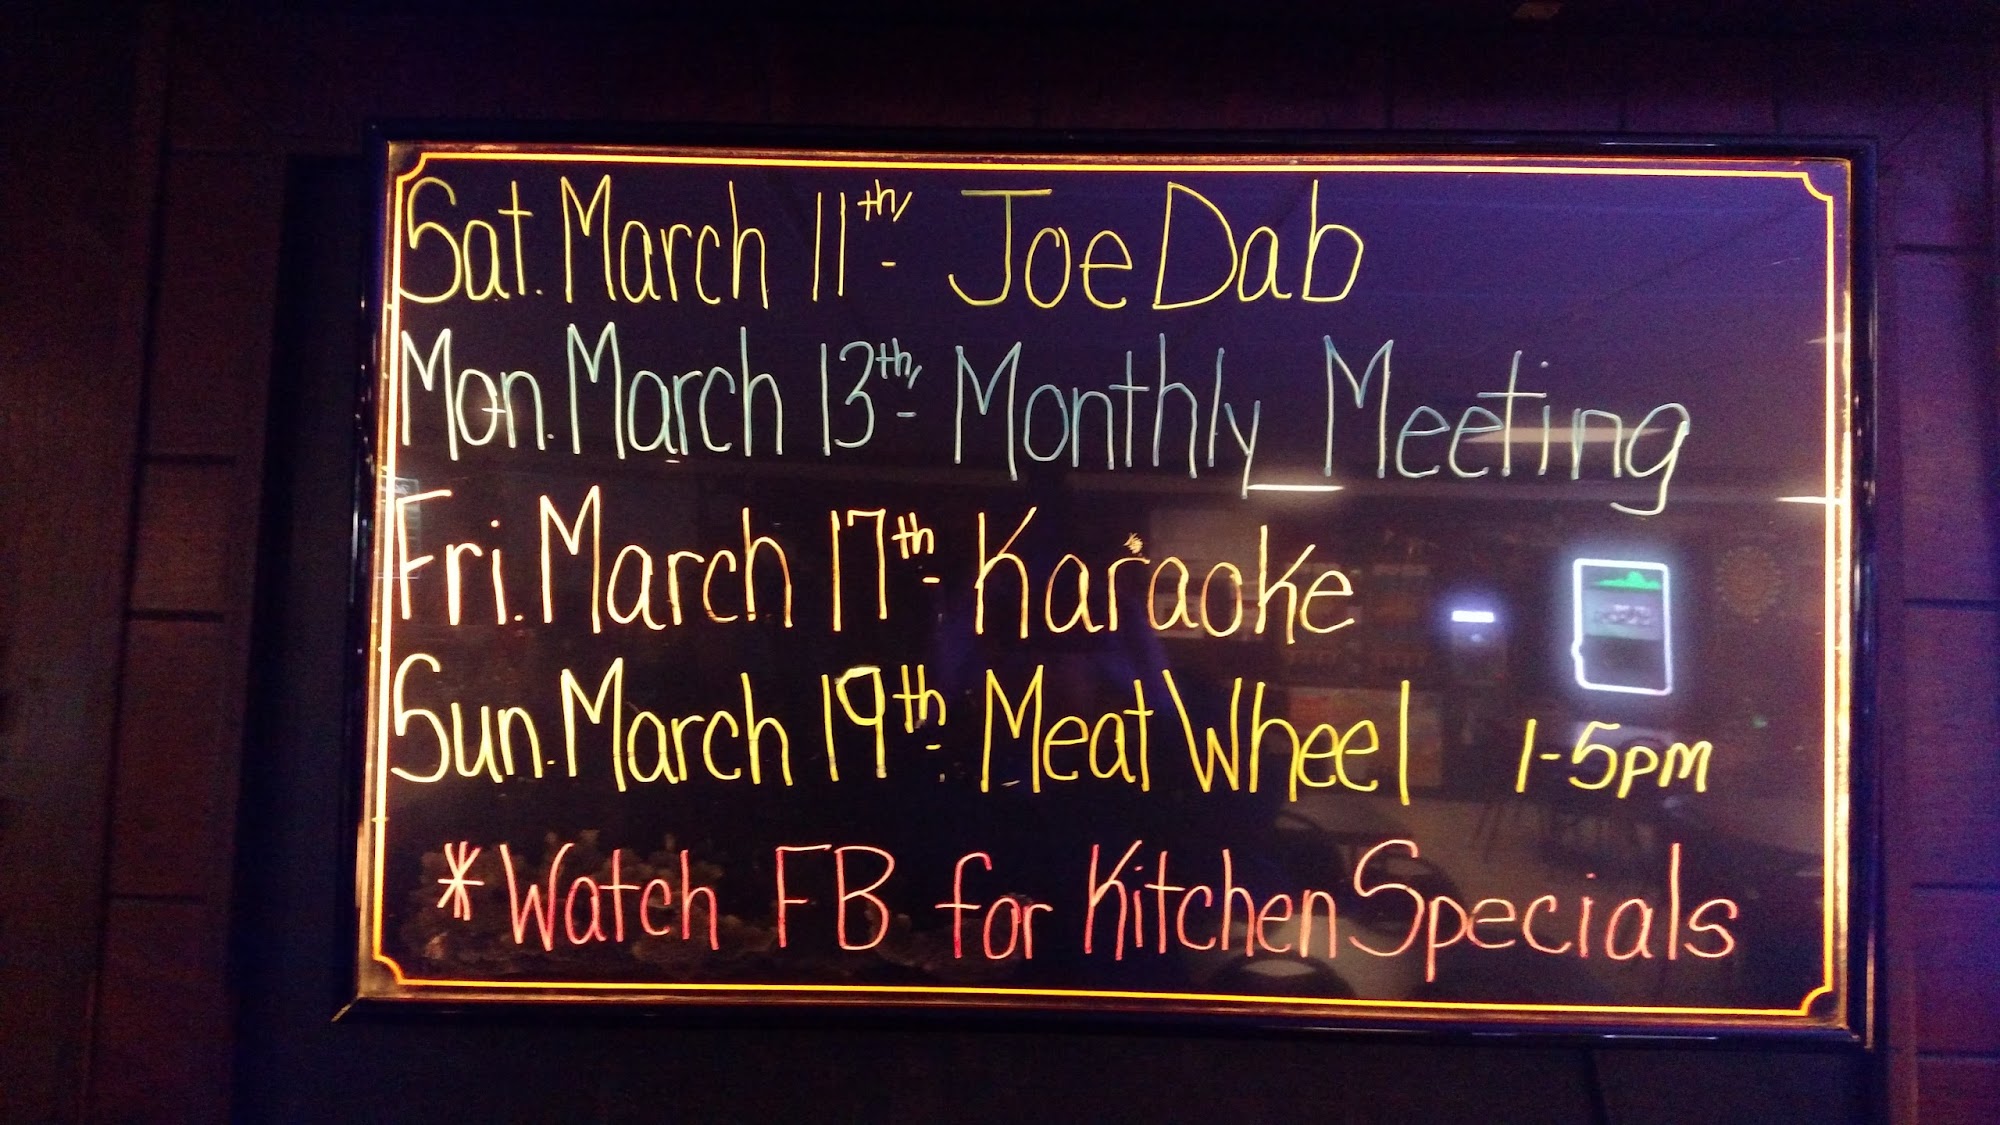 Sat. March 11th, - Joe Dab
Mon. March 13th, - Monthly Meeting
Fri. March 17th - Karaoke
Sun. March 19th - Meat Wheel 1-5pm
*Watch FB for Kitchen Specials